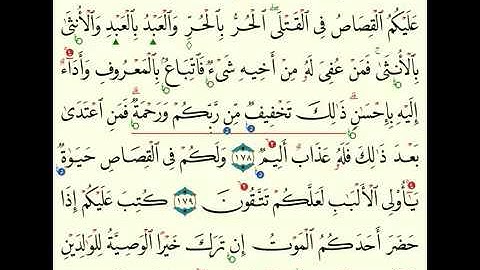 عَلَيْكُمُ ٱلْقِصَاصُ فِى ٱلْقَتْلَى ۖ ٱلْحُرُّ بِٱلْحُرِّ وَٱلْعَبْدُ بِٱلْعَبْدِ وَٱلْأُنثَىٰ
بِٱلْأُنثَىٰ ۚ فَمَنْ عُفِىَ لَهُۥ مِنْ أَخِيهِ شَىْءٌ فَٱتِّبَاعٌۢ بِٱلْمَعْرُوفِ وَأَدَآءٌ
إِلَيْهِ بِإِحْسَٰنٍ ۗ ذَٰلِكَ تَخْفِيفٌ مِّن رَّبِّكُمْ وَرَحْمَةٌ ۗ فَمَنِ ٱعْتَدَىٰ
بَعْدَ ذَٰلِكَ فَلَهُۥ عَذَابٌ أَلِيمٌ ١٧٨ وَلَكُمْ فِى ٱلْقِصَاصِ حَيَوٰةٌ
يَٰٓأُو۟لِى ٱلْأَلْبَٰبِ لَعَلَّكُمْ تَتَّقُونَ ١٧٩ كُتِبَ عَلَيْكُمْ إِذَا
حَضَرَ أَحَدَكُمُ ٱلْمَوْتُ إِن تَرَكَ خَيْرًا ٱلْوَصِيَّةُ لِلْوَٰلِدَيْنِ